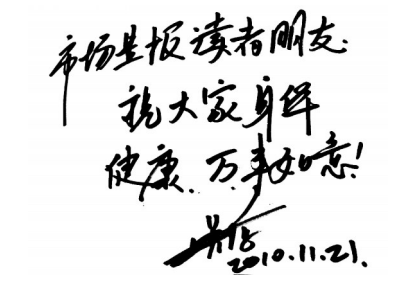 市场星报读者朋友:
祝大家身体
健康、万事如意!
2010.11.21.